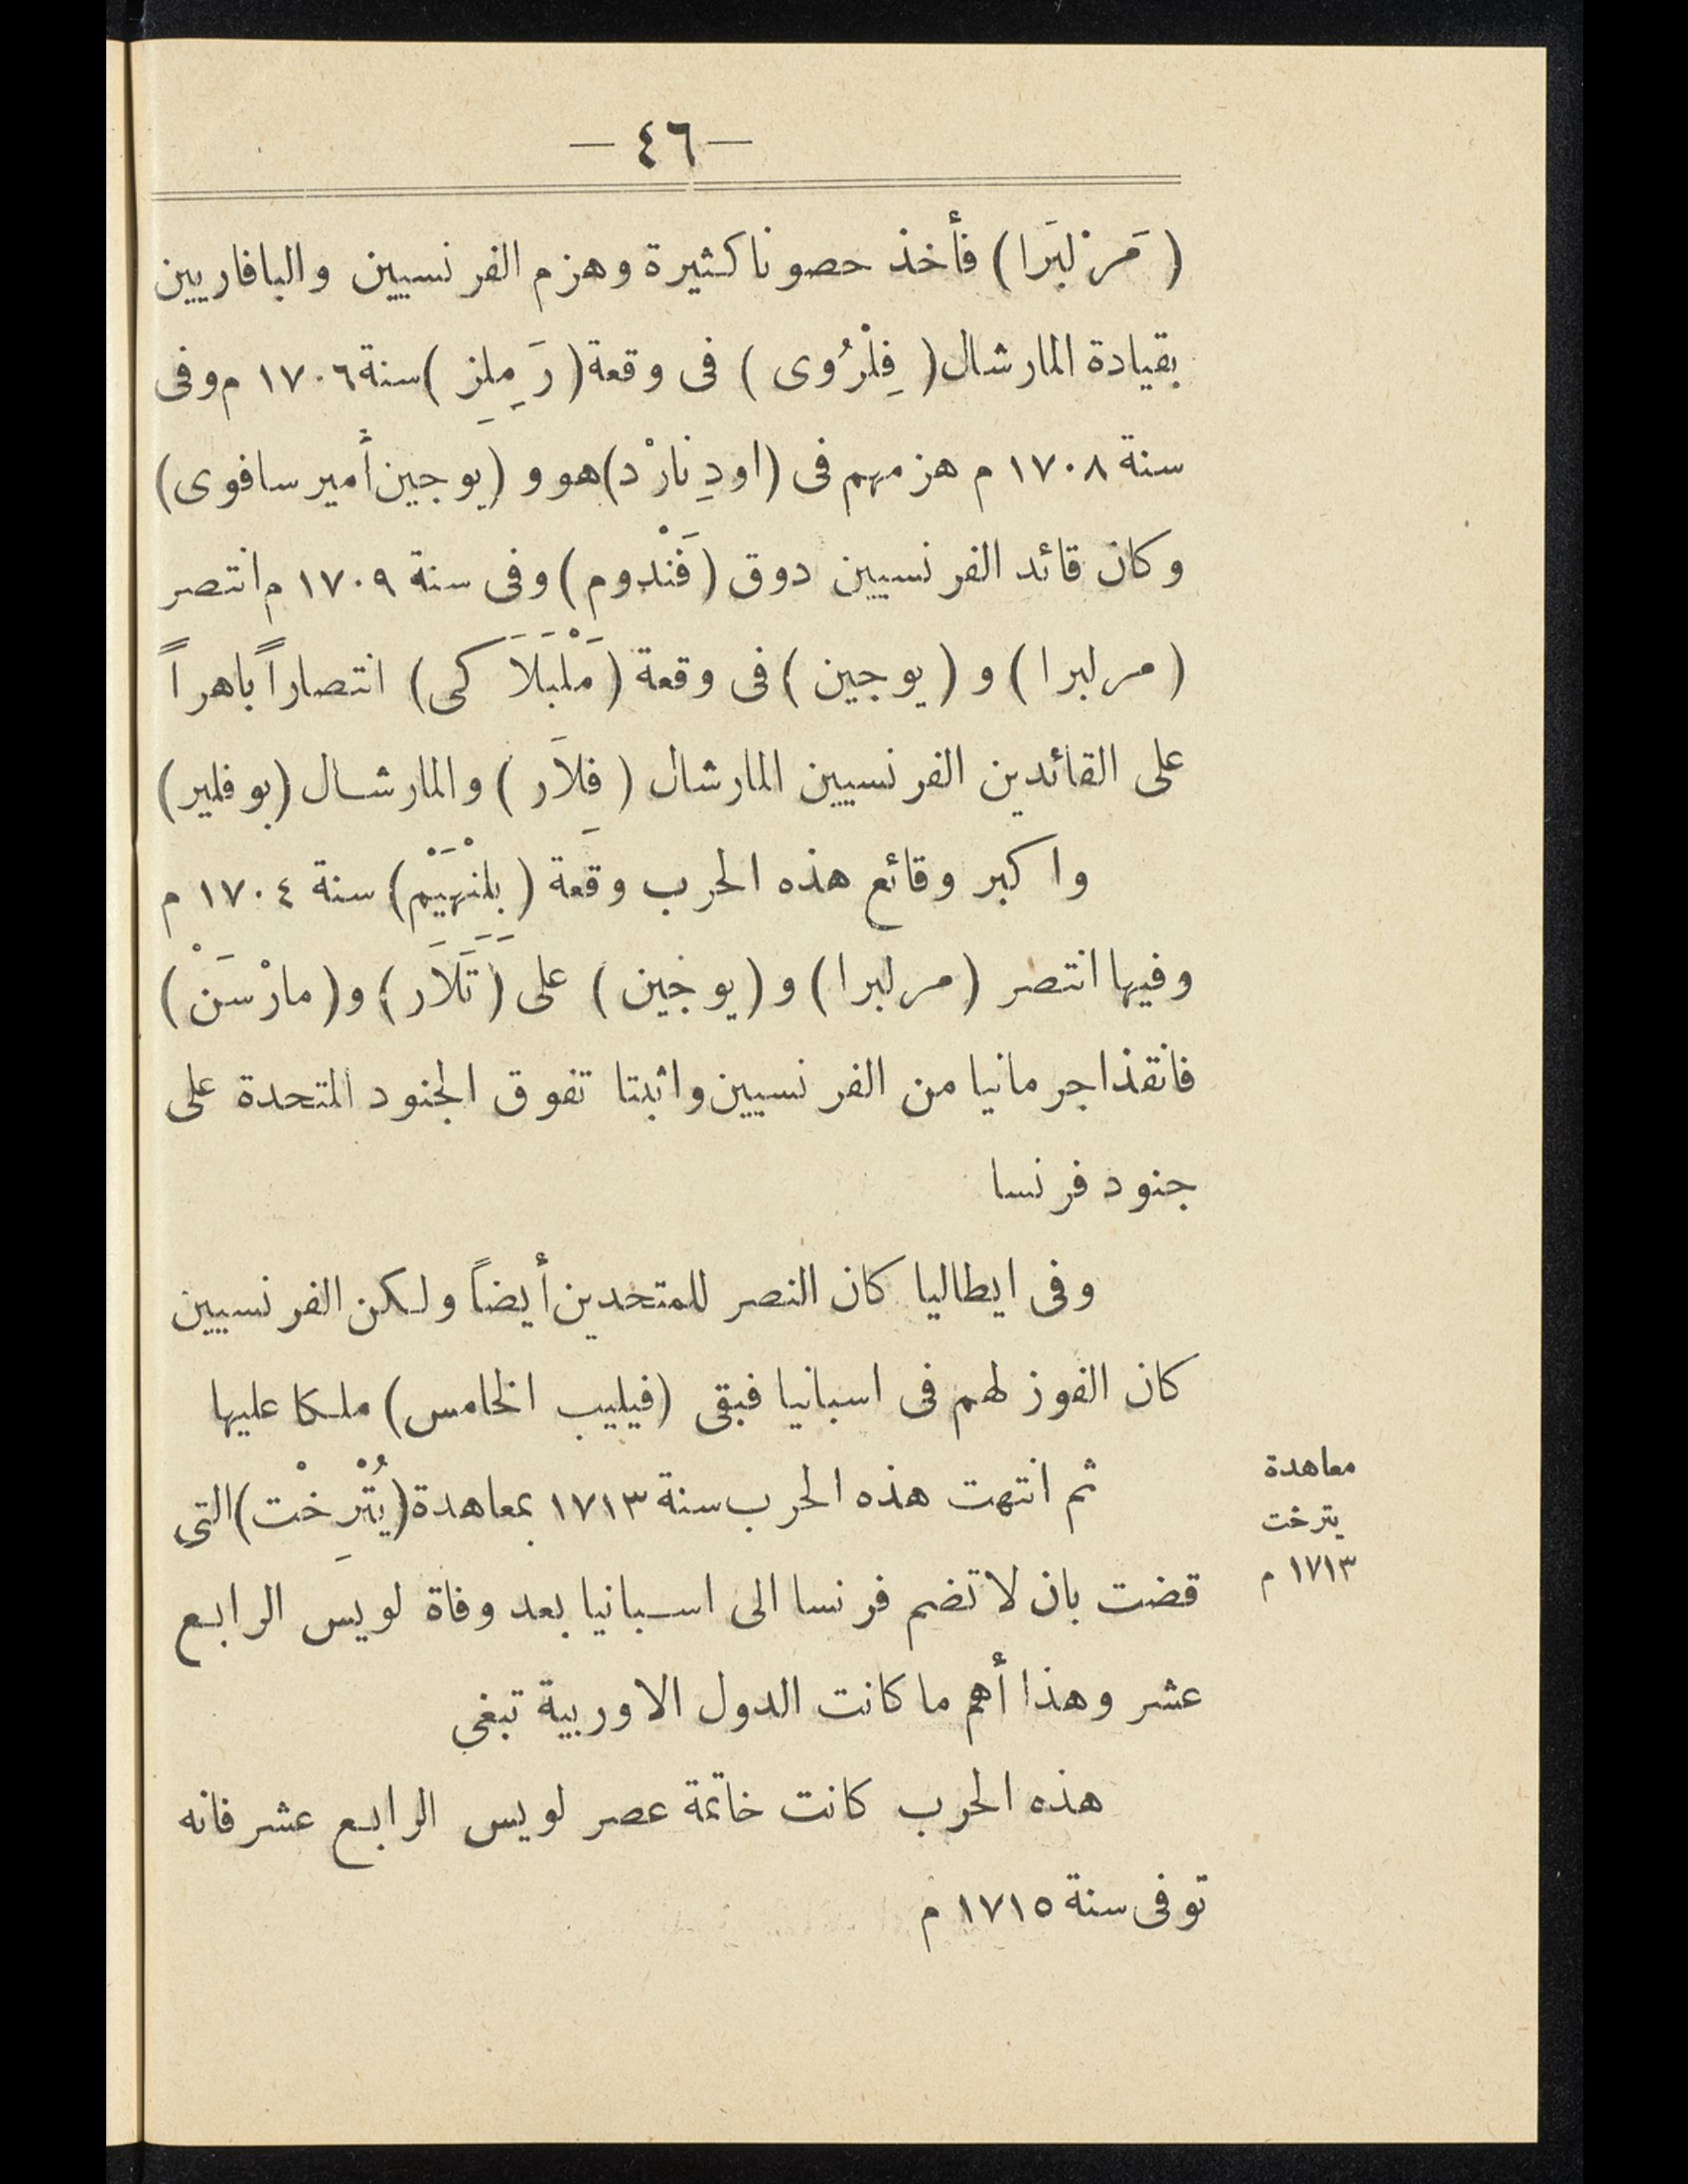 — ٤٦ —
( مَرلبَرا ) فأخذ حصونا كثيرة وهزم الفرنسيين والبافاريين
بقيادة المارشال ( فِلْرُوى ) فى وقعة ( رَمِلِز ) سنة ١٧٠٦ م وفى
سنة ١٧٠٨ م هزمهم فى ( اودِنارْد ) هو و ( يوجين أمير سافوى )
وكان قائد الفرنسيين دوق ( فَنْدوم ) وفى سنة ١٧٠٩ م انتصر
( مرلبرا ) و ( يوجين ) فى وقعة ( مَلْبَلَاَكى ) انتصاراً باهراً
على القائدين الفرنسيين المارشال ( فِلاَر ) والمارشال ( بوفلير )
واكبر وقائع هذه الحرب وقعة ( بِلِنْهَيْم ) سنة ١٧٠٤ م
وفيها انتصر ( مرلبرا ) و ( يوجين ) على ( تَلاَر ) و ( مارْسَنْ )
فانقذا جرمانيا من الفرنسيين واثبتا تفوق الجنود المتحدة على
جنود فرنسا
وفى ايطاليا كان النصر للمتحدين أيضاً ولكن الفرنسيين
كان الفوز لهم فى اسبانيا فبقى ( فيليب الخامس ) ملكا عليها
ثم انتهت هذه الحرب سنة ١٧١٣ بمعاهدة ( يُتْرِخْت ) التى
قضت بان لا تضم فرنسا الى اسبانيا بعد وفاة لويس الرابع
عشر وهذا أهم ما كانت الدول الاوربية تبغي
هذه الحرب كانت خاتمة عصر لويس الرابع عشر فانه
توفى سنة ١٧١٥ م
معاهدة
يترخت
١٧١٣ م